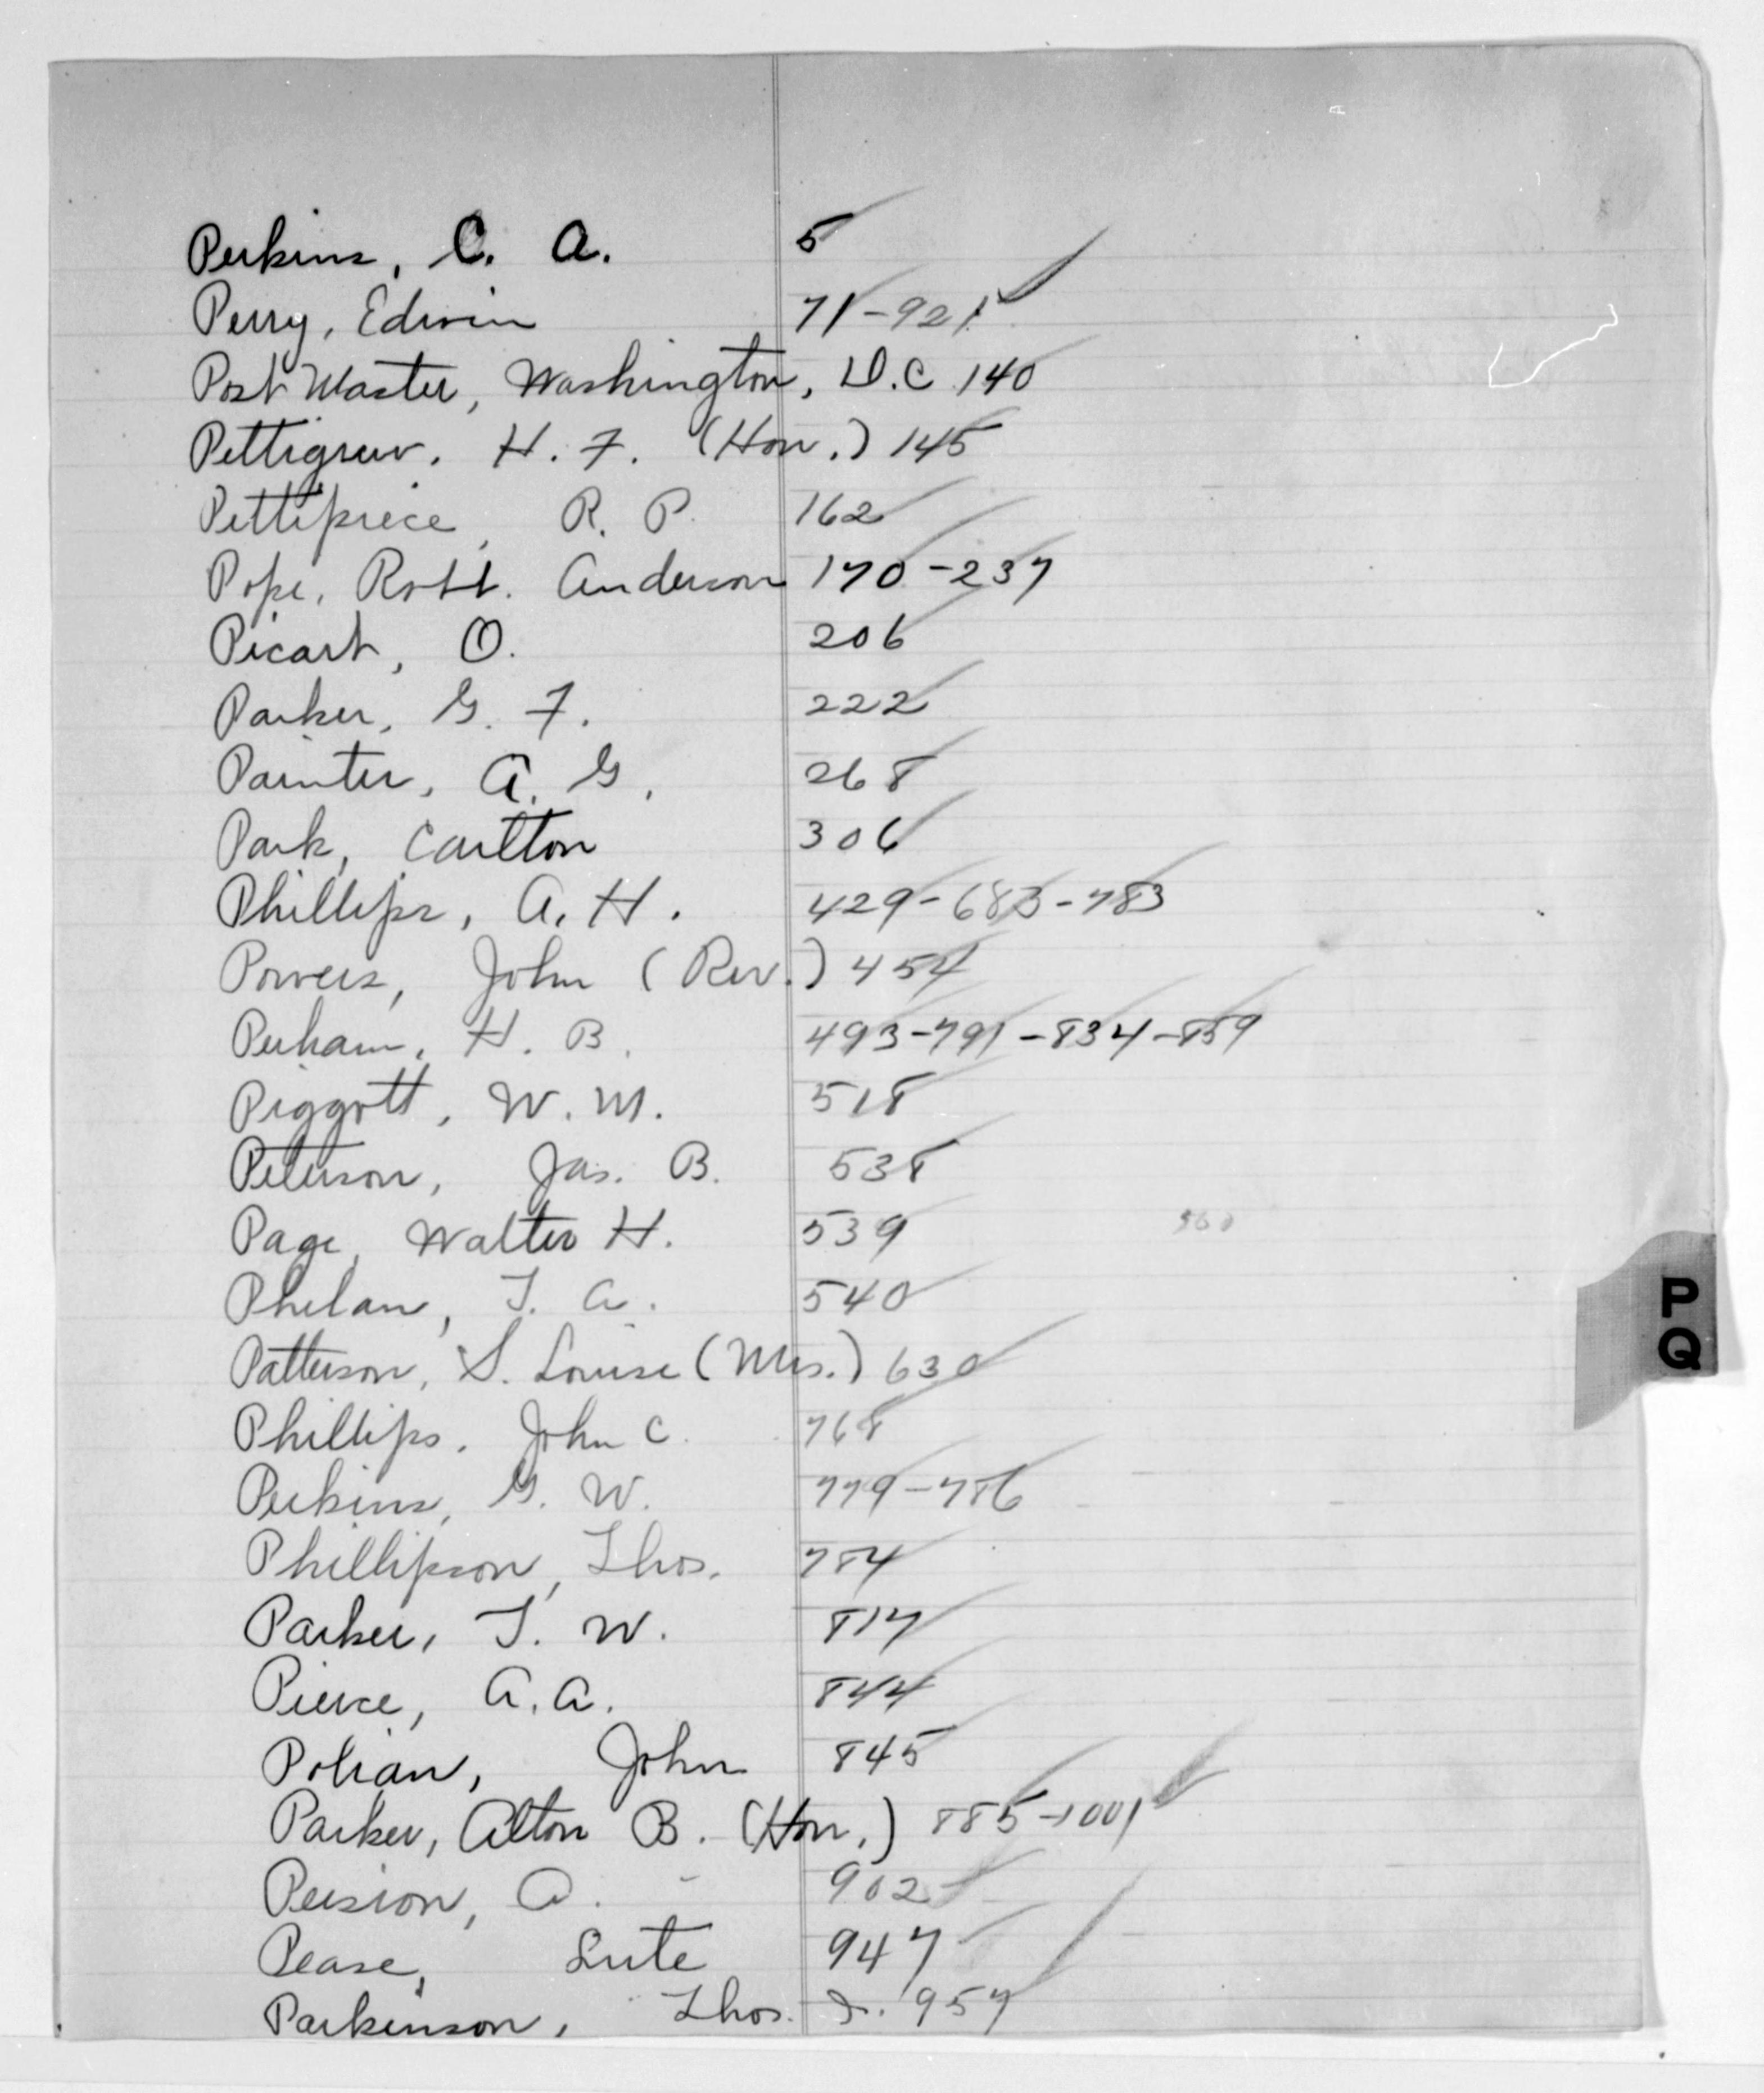 Perkins, C. A. 5
Perry, Edwin 71-921
Post Master, Washington, D.C. 140
Pettigrew, H. F. (Hon.) 145
Pettipiece, R. P. 162
Pope, Robt. Anderson 170-237
Picart, O. 206
Parker, G. F. 222
Painter, A. G. 268
Park, Carlton 306
Phillips, A. H. 429-683-783
Powers, John (Rev.) 454
Perham, H. B. 493-791-834-859
Piggott, W. M. 518
Peterson, Jas. B. 538
Page, Walter H. 539
Phelan, T. A. 540
P
Q
Patterson, S. Louise (Mrs.) 630
Phillips, John C. 768
Perkins, G. W. 779-786
Phillipson, Thos. 784
Parker, T. W. 817
Pierce, A. A. 844
Polian, John 845
Parker, Alton B. (Hon.) 885-1001
Persion, A. 902
Pease, Lute 947
Parkinson, Thos. I. 957